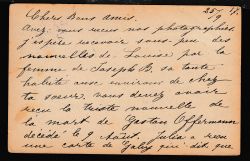 25/8 14/9
Chers Bons Amis.
Avez vous reçu nos photographies
j'espère recevoir sous peu des
nouvelles de Louise par la
femme de Joseph B. sa toute
habite aux environs de chez
ta soeur, vous devez avoir
reçu la triste nouvelle de
la mort de Gaston Offermann
décédé le 9 Août. Julia a reçu
une carte de Gaby qui dit que